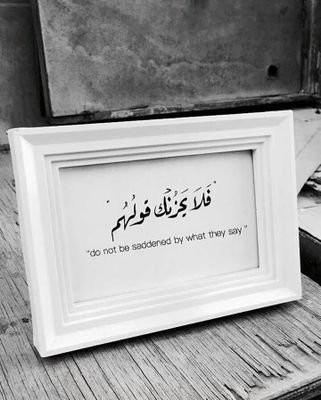 فَلَا يَحْزُنْكَ قَوْلُهُمْ
"do not be saddened by what they say"